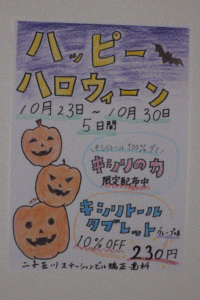 ハッピー
ハロウィーン
10月23日~10月30日
5日間
キシリトール100%ガム
キシリの力
限定配布中
キシリトール
タブレット グレープ味
10%OFF 230円
二子玉川ステーションビル矯正・歯科